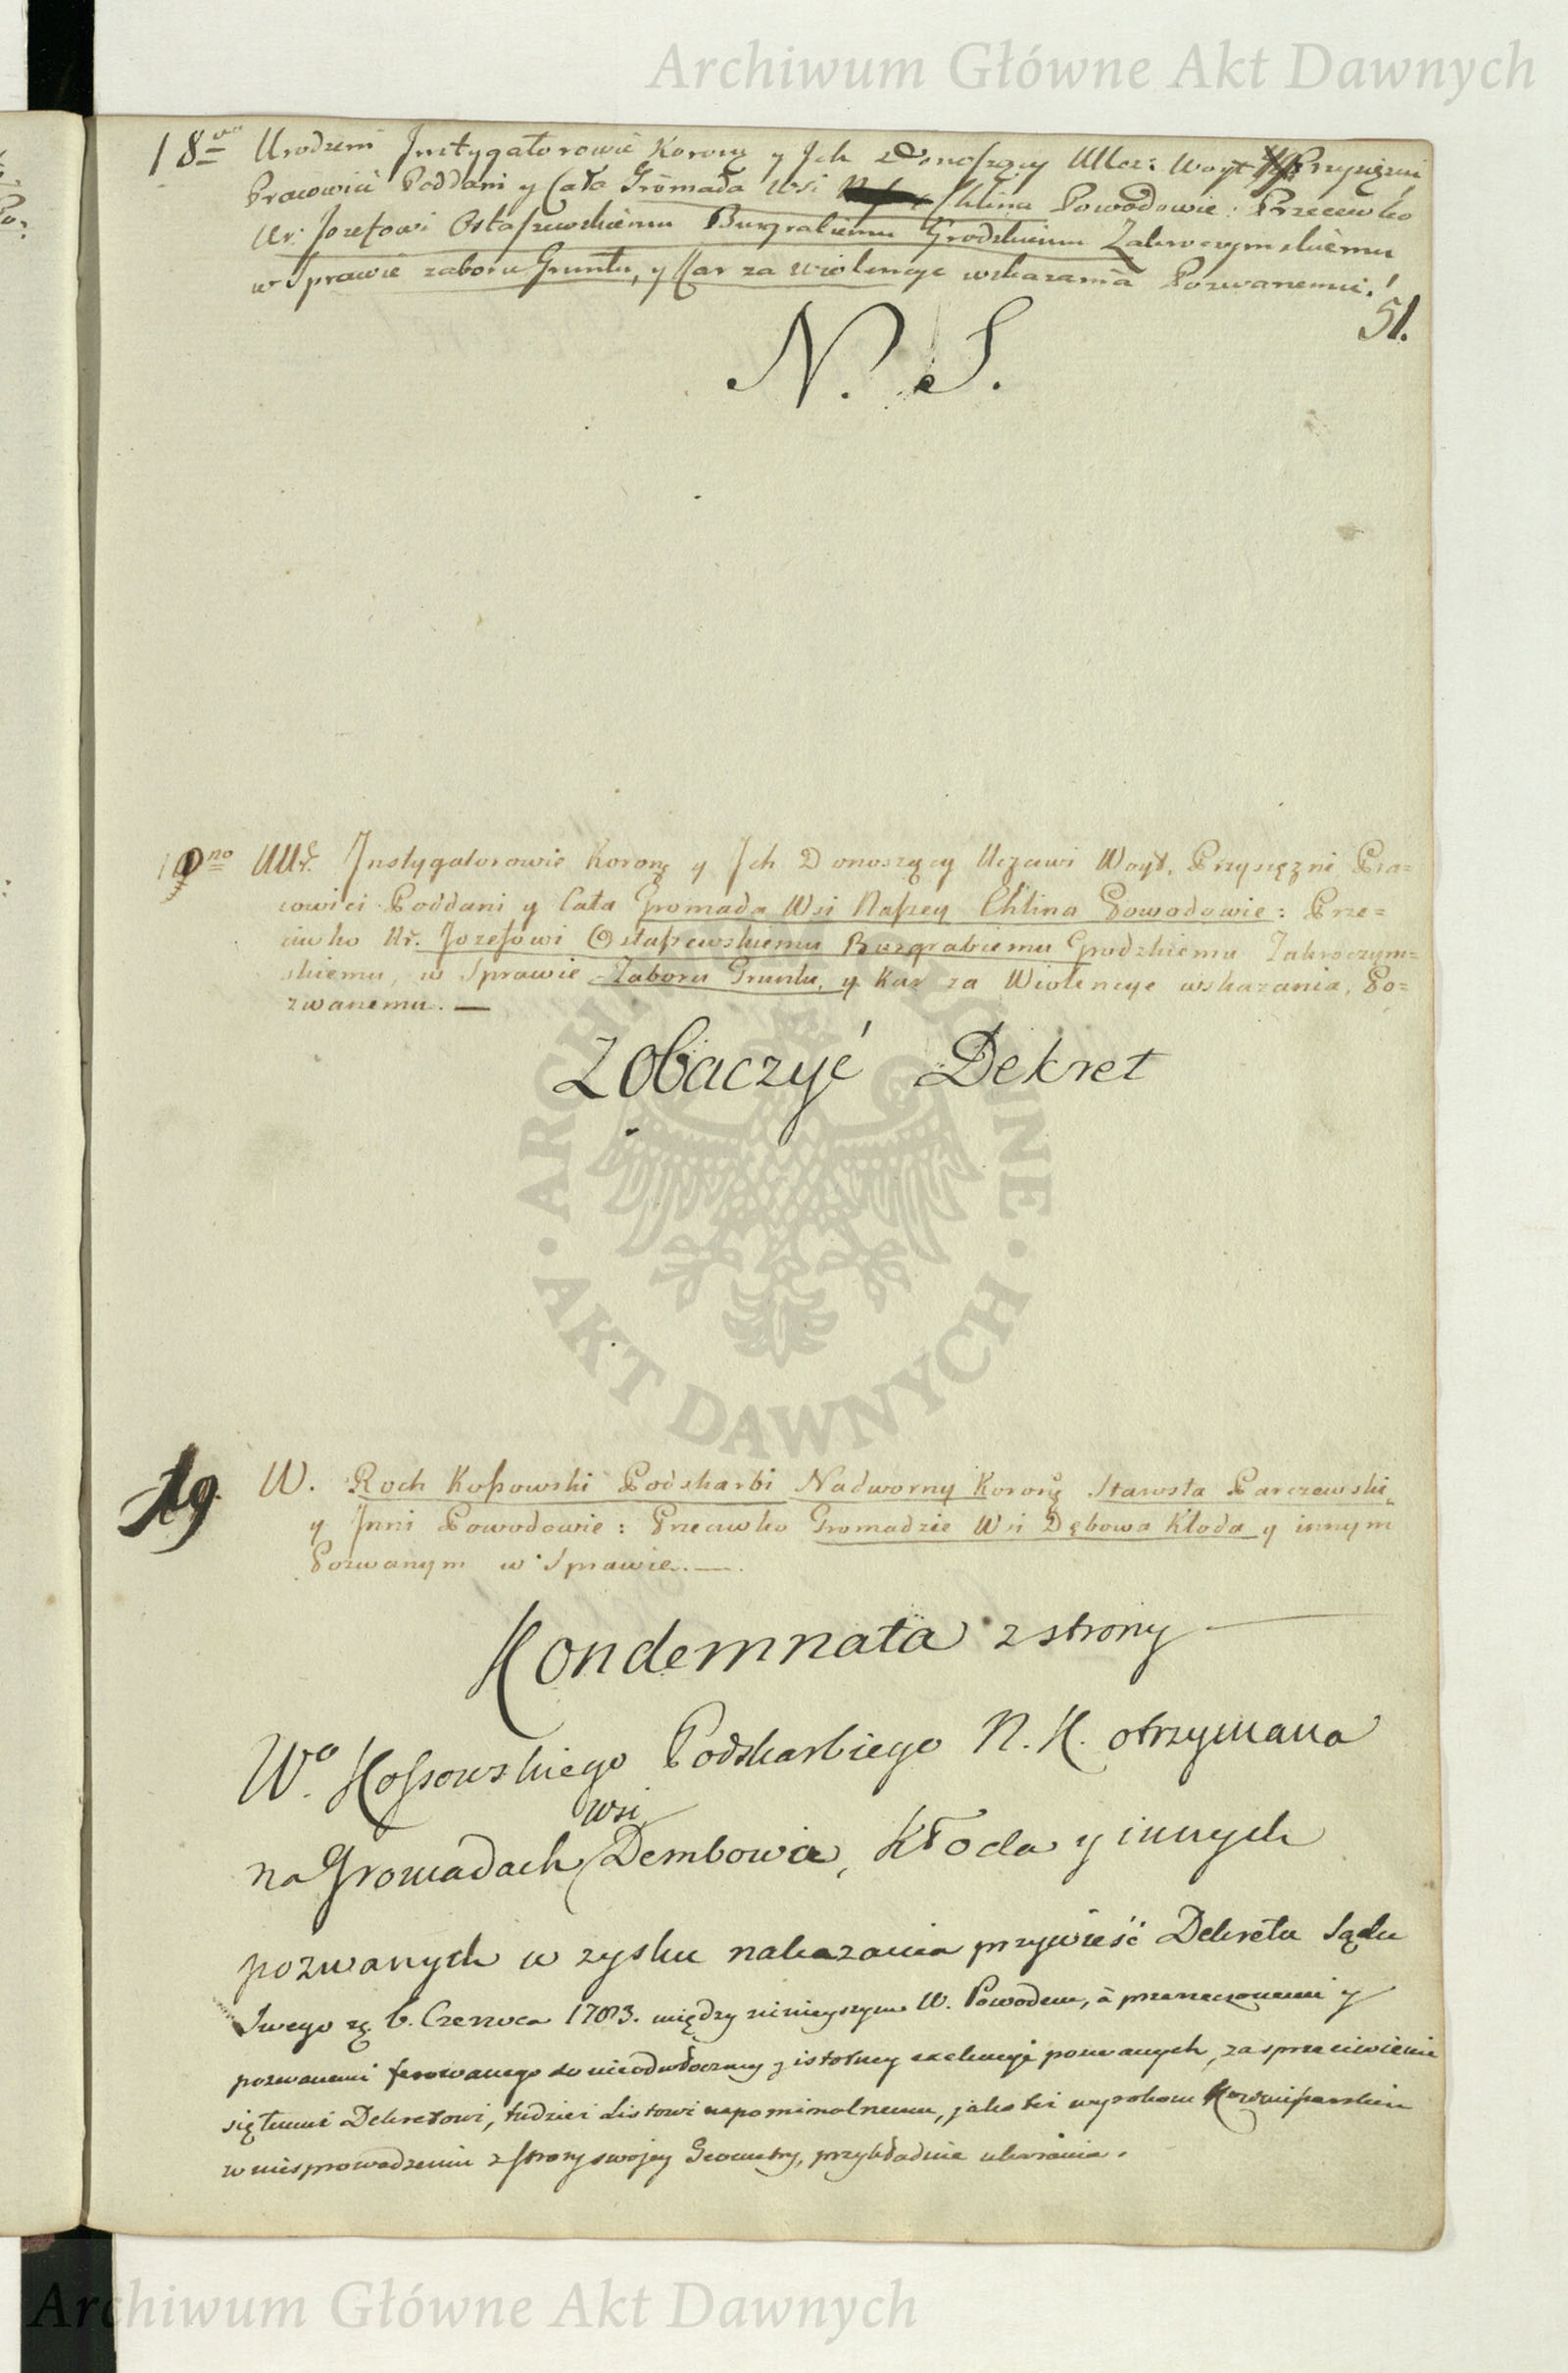 Archiwum Główne Akt Dawnych
18vo Urodzeni Instygatorowie Korony y Ich Donoszący UUcz: Woyt Przysiężni
Pracowici Poddani y Cała Gromada Wsi Chlina Powodowie: Przeciwko
Ur: Jozefowi Ostaszewskiemu Burgrabiemu Grodzkiemu Zakroczymskiemu
w Sprawie zaboru Gruntu, y Kar za wiolencye wskazania Pozwanemu.
51.
N. S.
no UUr. Instygatorowie Korony y Ich Donoszący Uczciwi Woyt, Przysiężni Pra=
cowici Poddani y Cała Gromada Wsi Naszey Chlina Powodowie: Prze=
ciwko Ur. Jozefowi Ostaszewskiemu Burgrabiemu Grodzkiemu Zakroczym=
skiemu, w Sprawie Zaboru Gruntu, y Kar za Wiolencye wskazania, Po=
zwanemu. —
Zobaczyć Dekret
ARCHIWUM GŁÓWNE • AKT DAWNYCH •
19. W. Roch Kossowski Podskarbi Nadworny Korony Starosta Parczewski
y Inni Powodowie: Przeciwko Gromadzie Wsi Dębowa Kłoda y innym
Pozwanym w Sprawie. —
Kondemnata z strony
Wo. Kossowskiego Podskarbiego N. K. otrzymana
wsi
na Gromadach Dembowa, Kłoda y innych
pozwanych w zysku nakazania przywieść Dekretu Sądu
Swego 6. Czerwca 1783. między ninieyszym W. Powodem, à y
pozwanemi ferowanego do nieodwłoczney y istotney exekucyi pozwanych, za sprzeciwienie
się temuż Dekretowi, tudzież Listowi napominalnemu, jako też wyrokom
w niesprowadzeniu z strony swojey Geometry, przykładnie ukarania.
Archiwum Główne Akt Dawnych